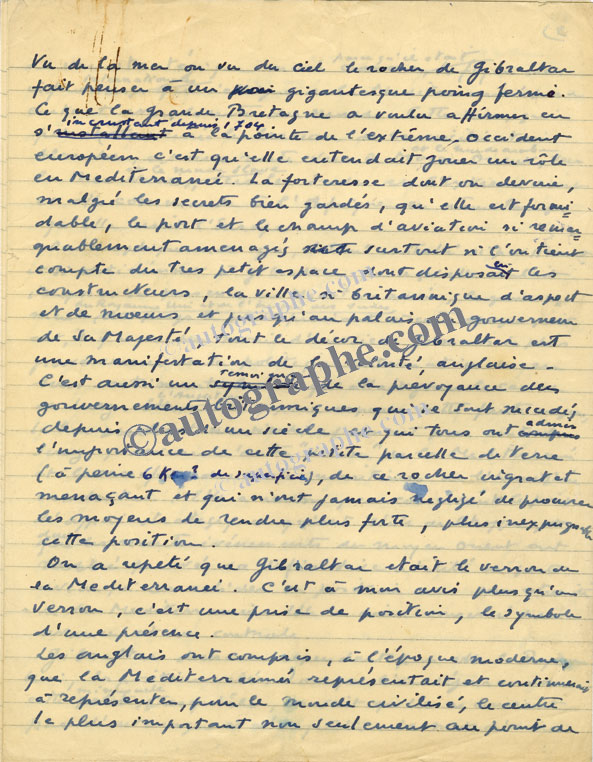 Vu de la mer ou vu du ciel le rocher de Gibraltar
fait penser à un gigantesque poing fermé.
Ce que la Grande Bretagne a voulu affirmer en
incrustant depuis 1704
s'installant à la pointe de l'extrême occident
européen c'est qu'elle entendait jouer un rôle
en Mediterranée. La forteresse dont on devine,
malgré les secrets bien gardés, qu'elle est formi-
dable, le port et le champ d'aviation si remar-
quablement amenagés surtout si l'on tient
compte du tres petit espace dont disposaient les
constructeurs, la ville si britannique d'aspect
et de mœurs et jusqu'au palais du gouverneur
de Sa Majesté tout le décor de Gibraltar est
une manifestation de anglaise.
C'est aussi un de la prevoyance des
gouvernements britanniques qui se sont succedés
depuis un siècle et qui tous ont admis
compris
l'importance de cette petite parcelle de terre
(à peine 6 Km2 de superficie), de ce rocher ingrat et
menaçant et qui n'ont jamais negligé de procurer
les moyens de rendre plus forte, plus inexpugnable
cette position.
On a repeté que Gibraltar etait le verrou de
la Mediterranée. C'est à mon avis plus qu'un
verrou, c'est une prise de position, le symbole
d'une présence.
Les anglais ont compris, à l'époque moderne,
que la Méditerranée représentait et continuerait
à représenter, pour le monde civilisé, le centre
le plus important non seulement au point de
©autographe.com